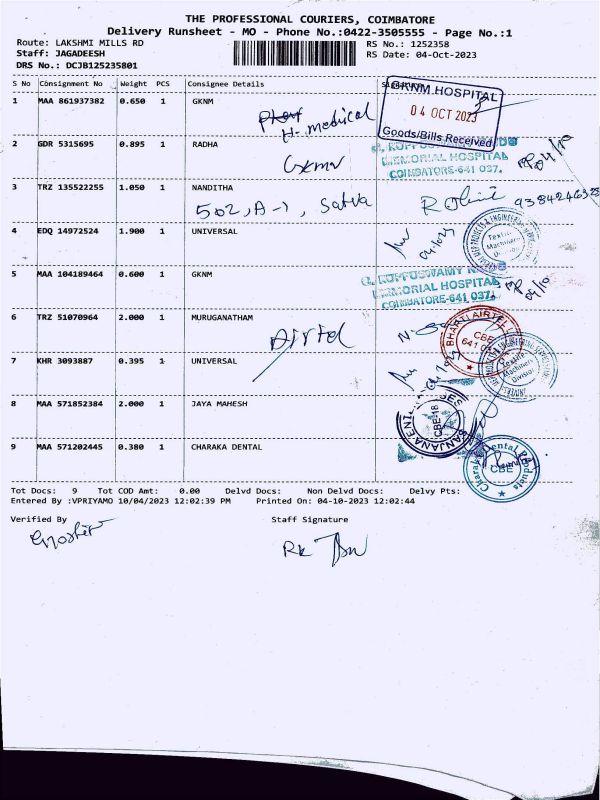 THE PROFESSIONAL COURIERS, COIMBATORE
Delivery Runsheet - MO - Phone No.:0422-3505555 - Page No.:1
Route: LAKSHMI MILLS RD
RS No.: 1252358
Staff: JAGADEESH
RS Date: 04-Oct-2023
DRS No.: DCJB125235801
S No Consignment No Weight PCS Consignee Details
1 MAA 861937382 0.650 1 GKNM
H- medical
GKNM HOSPITAL
04 OCT 2023
Goods/Bills Received
2 GDR 5315695 0.895 1 RADHA
Gknm
G. KUPPUSWAMY NAIDU
MEMORIAL HOSPITAL
COIMBATORE-641 037.
3 TRZ 135522255 1.050 1 NANDITHA
502, A-1, Satva
4 EDQ 14972524 1.900 1 UNIVERSAL
Textile
Machinery
Division
5 MAA 104189464 0.600 1 GKNM
G. KUPPUSWAMY NAIDU
MEMORIAL HOSPITAL
COIMBATORE-641 037.
6 TRZ 51070964 2.000 1 MURUGANATHAM
Airtel
BHARTI AIRTEL
CBE
7 KHR 3093887 0.395 1 UNIVERSAL
Textile
Machinery
Division
8 MAA 571852384 2.000 1 JAYA MAHESH
CBE-18
9 MAA 571202445 0.380 1 CHARAKA DENTAL
Charaka Dental Products
CBE
Tot Docs: 9 Tot COD Amt: 0.00 Delvd Docs: Non Delvd Docs: Delvy Pts:
Entered By :VPRIYAMO 10/04/2023 12:02:39 PM Printed On: 04-10-2023 12:02:44
Verified By Staff Signature